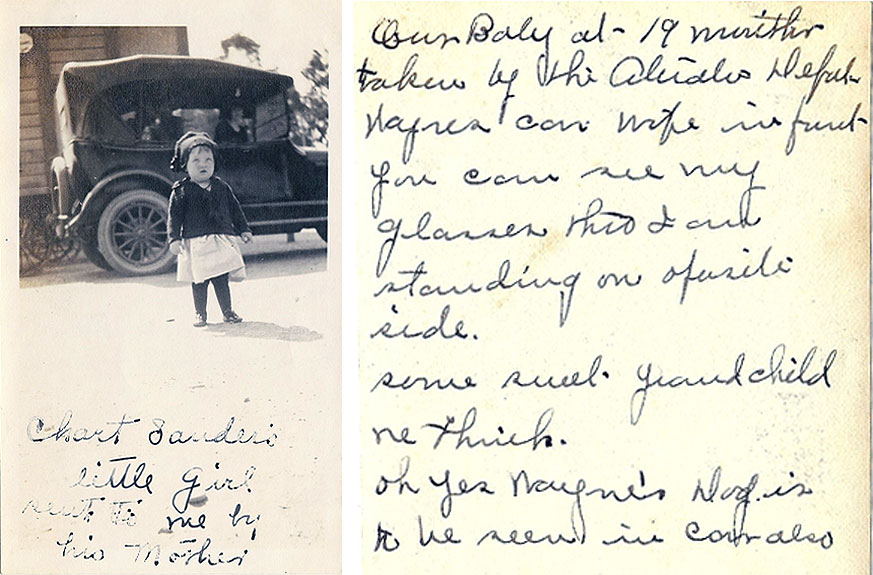 Chart Sander's
little Girl
sent to me by
his Mother
Our Baby at 19 months
taken by the Depot
Waynes car wife in front
you can see my
glasses tho I am
standing on opusite
side.
some sweet grandchild
we think.
oh yes Wayne's Dog is
to be seen in car also